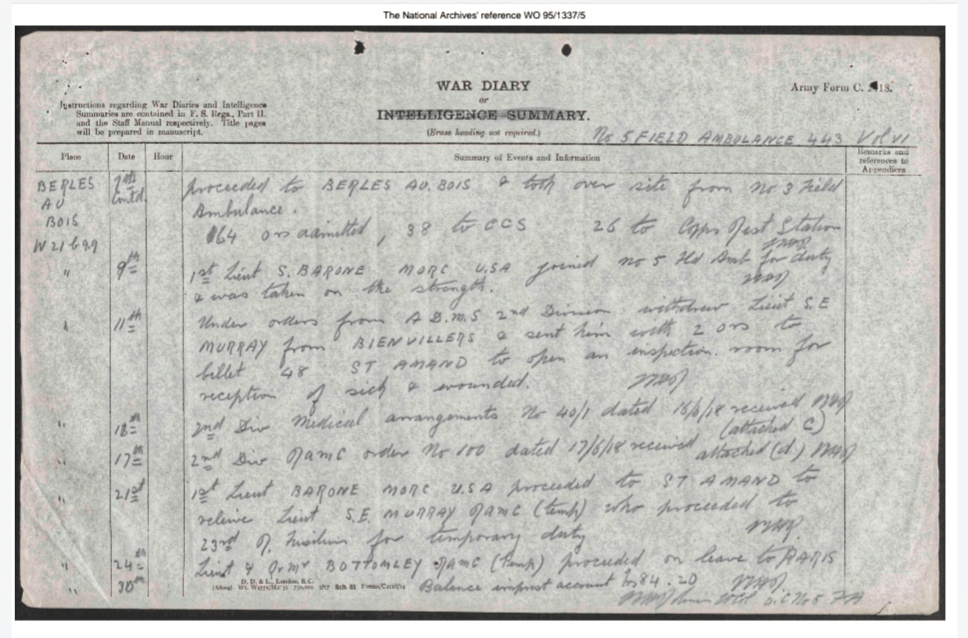 The National Archives' reference WO 95/1337/5
WAR DIARY
or
INTELLIGENCE SUMMARY.
(Erase heading not required.)
Army Form C. 2118.
Instructions regarding War Diaries and Intelligence
Summaries are contained in F. S. Regs., Part II.
and the Staff Manual respectively. Title pages
will be prepared in manuscript.
No 5 FIELD AMBULANCE Vol VI
Place Date Hour Summary of Events and Information Remarks and
references to
Appendices
BERLES AU BOIS contd. proceeded to BERLES AU BOIS & took over site from No 3 Field
Ambulance.
164 ors admitted, 38 to CCS 26 to Corps Rest Station
" 9th 1st Lieut S. BARONE MORC USA joined No 5 Fld Amb for duty
& was taken on the strength.
" 11th Under orders from A.D.M.S 2nd Division withdrew Lieut S.E
MURRAY from BIENVILLERS & sent him with 2 ors to
billet 48 ST AMAND to open an inspection room for
reception of sick & wounded.
" 2nd Div Medical arrangements No 40/1 dated received
(attached C)
" 17th 2nd Div RAMC order No 100 dated 17/6/18 received attached (d)
" 21st 1st Lieut BARONE MORC USA proceeded to ST AMAND to
relieve Lieut S.E. MURRAY RAMC (temp) who proceeded to
23rd R. Fusiliers for temporary duty
" 24th Lieut & Qr Mr BOTTOMLEY RAMC (temp) proceeded on leave to PARIS
" 30th Balance imprest account 84.20
D. D. & L., London, E.C.
O.C No 5 FA